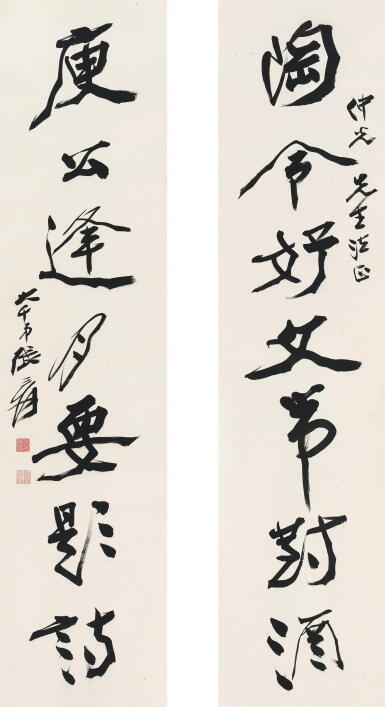 仲光先生法正
陶令好文常對酒
庾公逢月要題詩
大千弟張爰